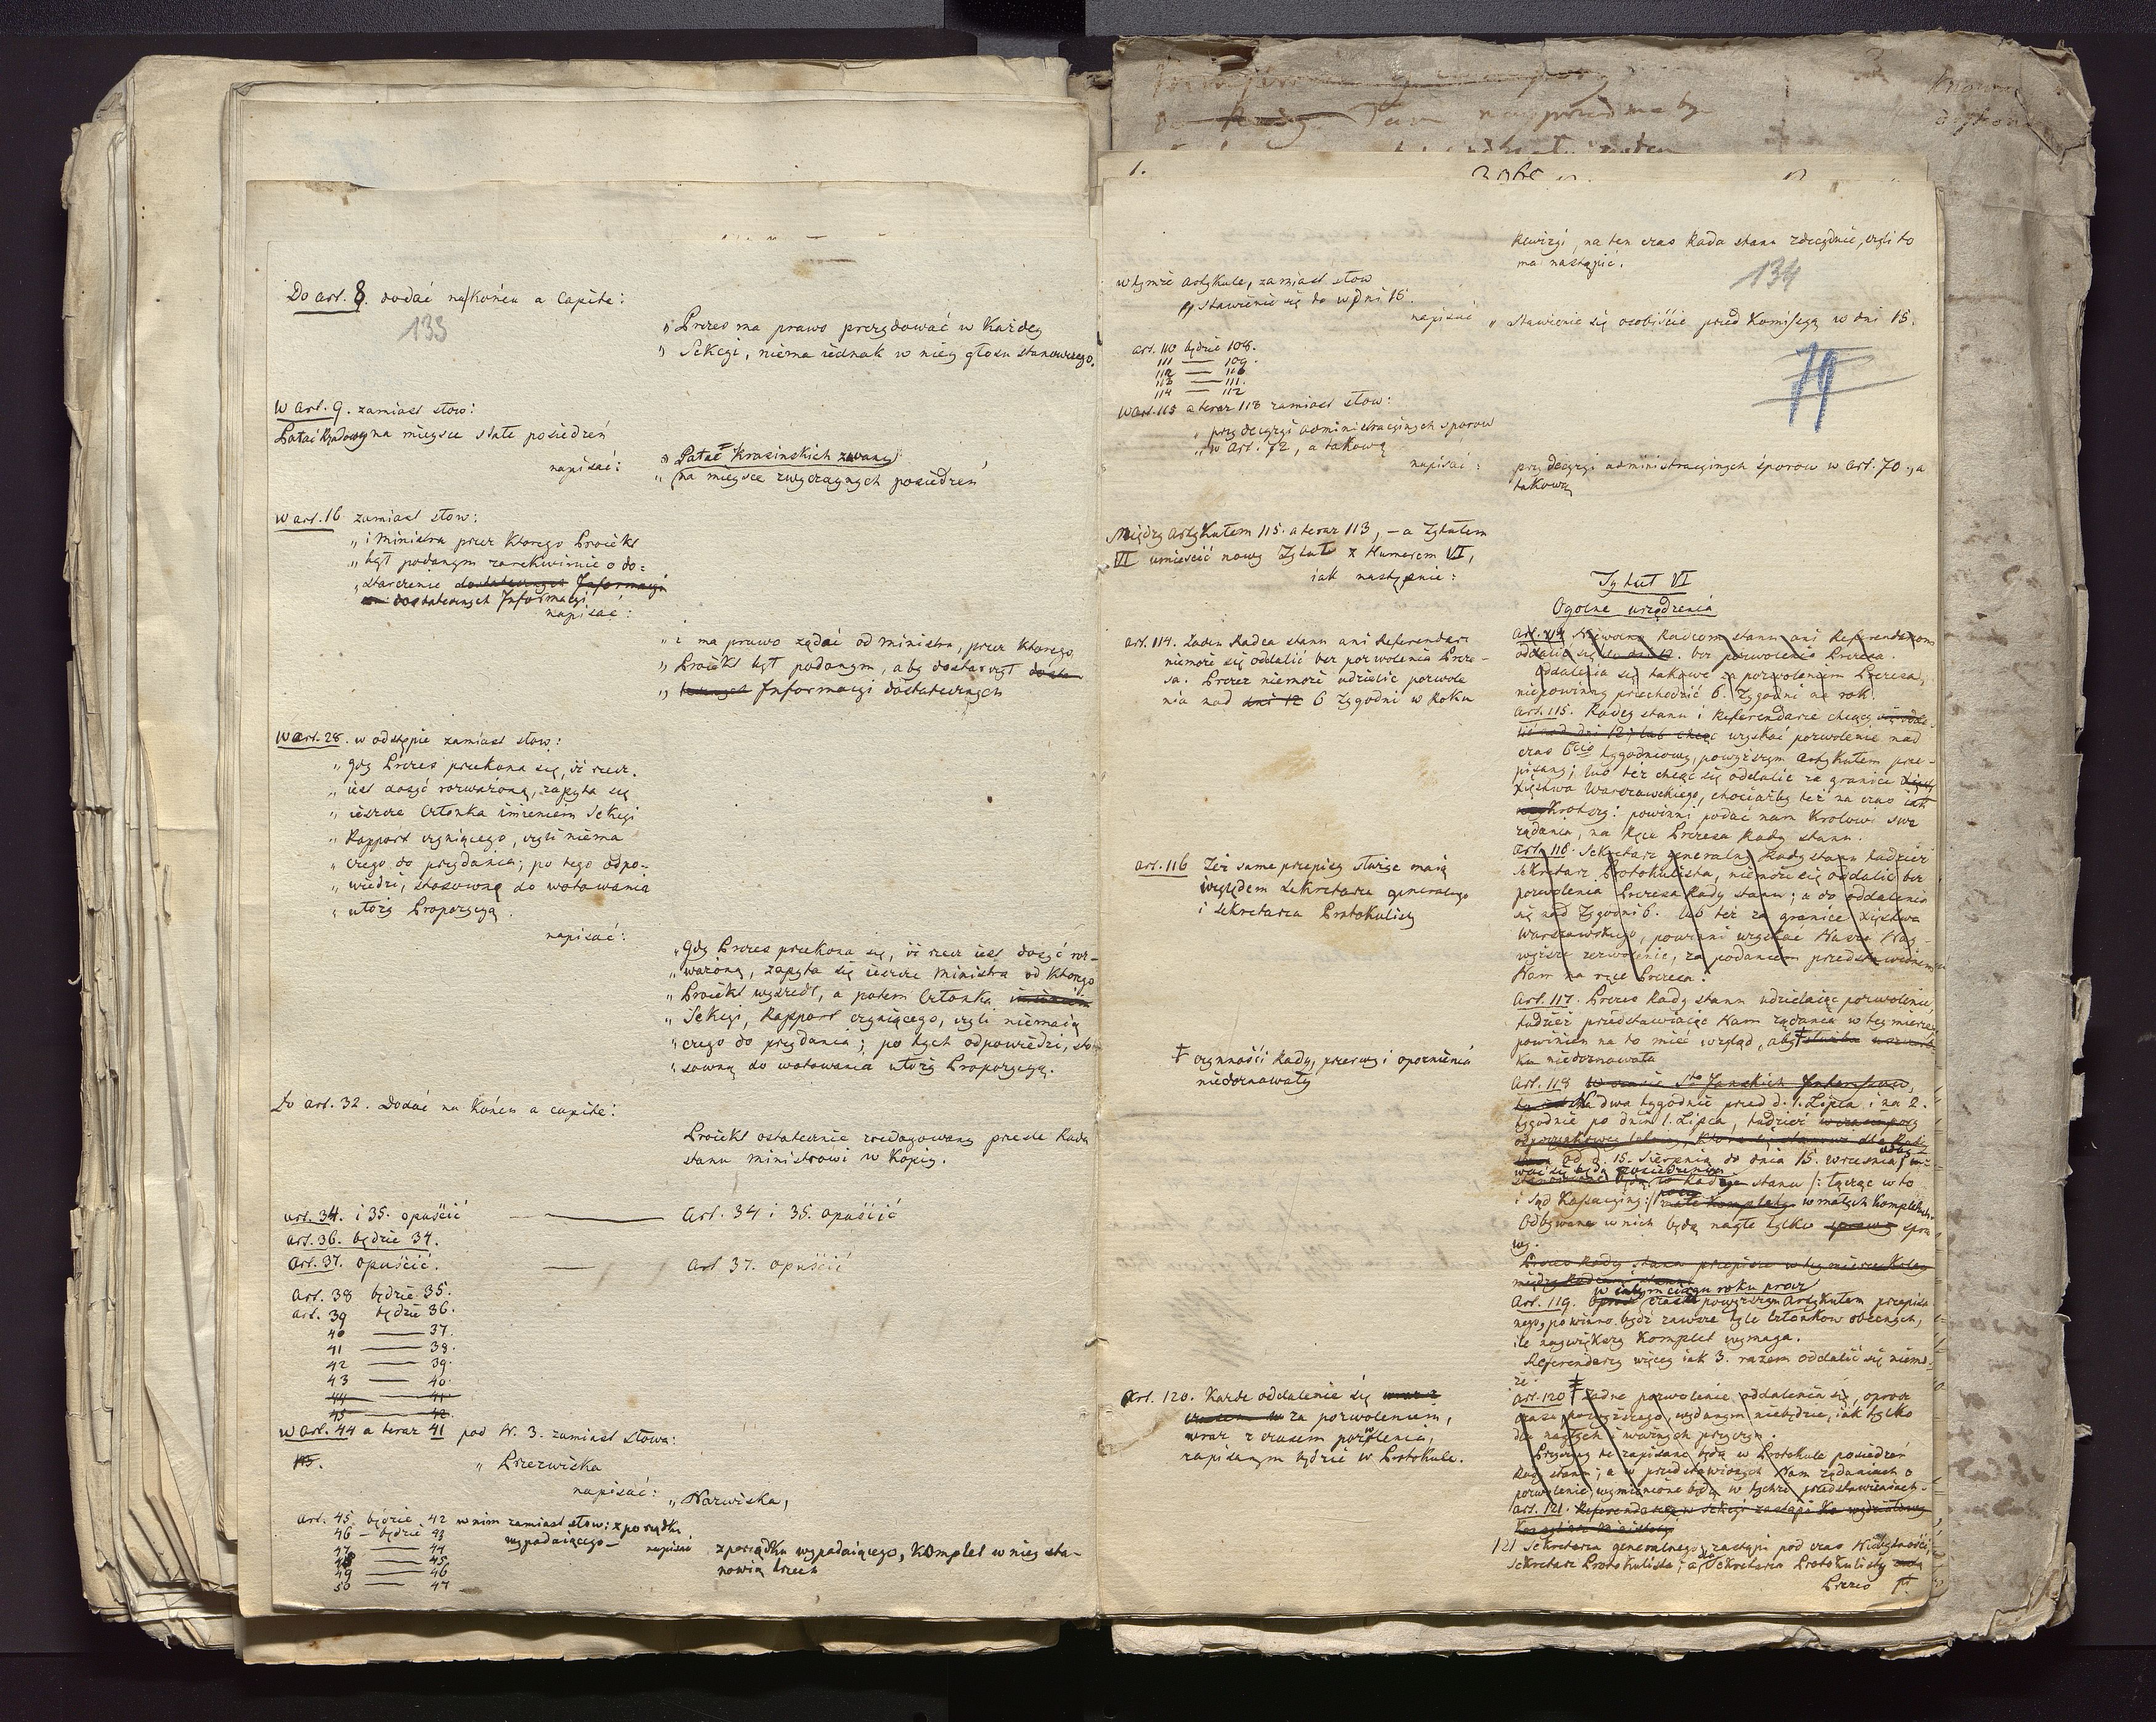 Do art. 8. dodać na końcu a capite:
133
„ Prezes ma prawo prezydować w każdey
„ Sekcyi, niema iednak w niey głosu stanowczego.
W art. 9. zamiast słow:
Pałac Rządowy na mieysce stałe posiedzeń
napisać:
„ Pałac Krasinskich zwany
„ na mieysce zwyczaynych posiedzeń
W art. 16 zamiast słow:
„ i Ministra przez którego Proiekt
„ był podanym zarekwiruie o do-
„ starczenie dostatecznych Informacyi
dostatecznych Informacyi
napisać:
„ i ma prawo żądać od Ministra, przez którego
„ Proiekt był podanym, aby dostarczył
„ Informacyi dostatecznych
W art. 28. w odstępie zamiast słow:
„ gdy Prezes przekona się, iż rzecz
„ iest dosyć rozważoną, zapyta się
„ ieszcze Członka imieniem Sekcyi
„ Rapport czyniącego, czyli niema
„ czego do przydania; po tego odpo-
„ wiedzi, stosowną do wotowania
„ ułoży Propozycyą.
napisać:
„ Gdy Prezes przekona się, iż rzecz iest dosyć roz-
„ ważoną, zapyta się ieszcze Ministra od którego
„ Proiekt wyszedł, a potem Członka imieniem
„ Sekcyi, Rapport czyniącego, czyli niemaią
„ czego do przydania; po tych odpowiedzi, sto-
„ sowną do wotowania ułoży Propozycyą.
Do art. 32. Dodać na końcu a capite:
Proiekt ostatecznie zredagowany prześle Rada
stanu Ministrowi w kopiy.
Art. 34. i 35. opuścić — Art. 34 i 35. opuścić
Art. 36. będzie 34.
Art. 37. opuścić. — Art 37. opuścić
Art. 38 będzie 35.
Art. 39 będzie 36.
40 — 37.
41 — 38.
42 — 39.
43 — 40.
44 — 41
45 — 42.
W Art. 44 a teraz 41 pod N. 3. zamiast słowa:
45.
„ Przezwiska
napisać:
„ Nazwiska,
Art. 45. będzie 42 w nim zamiast słow: z porządku
46 — będzie 43 wypadaiącego — napisać
z porządku wypadaiącego, komplet w niey sta-
nowią trzech
47 — 44
48 — 45
49 — 46
50 — 47
1.
kwizyi, na ten czas Rada stanu zdecyduie, czyli to
ma nastąpić.
134
w tymże artykule, zamiast słow
„ stawienie się do w dni 15.
napisać
„ stawienie się osobiście przed Komissyą w dni 15.
79
Art. 110 będzie 108.
111 — 109.
112 — 110
113 — 111.
114 — 112
W Art. 115 a teraz 113 zamiast słow:
„ przy decyzyi administracyinych sporow
„ w Art. 72, a takową
napisać:
przy decyzyi administracyinych sporow w Art. 70., a
takową
Między artykułem 115. a teraz 113, – a Tytułem
VI umieścić nowy Tytuł z Numerem VI,
iak następuie:
Tytuł VI
Ogolne urządzenia
Art. 114. Żaden Radca stanu ani Referendarz
niemoże się oddalić bez pozwolenia Preze-
sa. Prezes niemoże udzielić pozwole
nia nad dni 12 6 Tygodni w Roku
Art. 114 Niewolno Radcom stanu ani Referendarzom
oddalić się bez pozwolenia Prezesa.
Oddalenia się takowe za pozwoleniem Prezesa,
niepowinny przechodzić 6. Tygodni na rok.
Art. 115. Radcy stanu i Referendarze chcący
uzyskać pozwolenie nad
czas 6cio tygodniowy, powyższym Artykułem prze-
pisany; lub też chcąc się oddalić za granice
Xięstwa Warszawskiego, chociażby też na czas
krotszy: powinni podać nam Krolowi swe
żądania, na ręce Prezesa Rady stanu.
Art. 116 Też same przepisy służyć maią
względem Sekretarza generalnego
i Sekretarza Protokulisty
Art. 116. Sekretarz generalny Rady stanu tudzież
Sekretarz Protokulista, niemoże się oddalić bez
pozwolenia Prezesa Rady stanu; a do oddalenia
się nad Tygodni 6. lub też za granice Xięstwa
Warszawskiego, powinni uzyskać Nasze Nay-
wyższe zezwolenie, za podaniem przedstawienia
Nam na ręce Prezesa.
Art. 117. Prezes Rady stanu udzielaiąc pozwolenie,
tudzież przedstawiaiąc Nam żądania w tey mierze,
powinien na to mieć wzgląd, aby
niedoznawała
‡ czynności Rady, przerwy i opoznienia
niedoznawały
Art. 118 W czasie Sto Janskich
Na dwa tygodnie przed d. 1. Lipca i na 2.
tygodnie po dniu 1. Lipca, tudzież
od d. 15. Sierpnia do dnia 15. września
stanu /: łącząc w to
i Sąd Kassacyiny :/ w małych kompletach.
Odbywane w nich będą nagłe tylko spra
wy.
Prezes Rady stanu przepisze w tey mierze koley
między Radcami stanu
w całym ciągu roku prócz
Art. 119. czasu powyższym Artykułem przepisa-
nego, powinno bydź zawsze tyle Członkow obecnych,
ile naywiększy komplet wymaga.
Referendarzy więcey iak 3. razem oddalić się niemo-
że.
Art. 120. Każde oddalenie się
za pozwoleniem,
wraz z czasem pozwolenia,
zapisanym będzie w Protokule.
Art. 120 żadne pozwolenie oddalenia się, oprocz
czasu powyższego, wydanym niebędzie, iak tylko
dla nagłych i ważnych przyczyn.
Przyczyny te zapisane będą w Protokule posiedzeń
Rady stanu; a w przedstawionych Nam żądaniach o
pozwolenie, wymienione będą w tychże przedstawieniach.
Art. 121.
121 Sekretarza generalnego, zastąpi pod czas niebytności,
Sekretarz Protokulista; a Sekretarza Protokulisty
Prezes